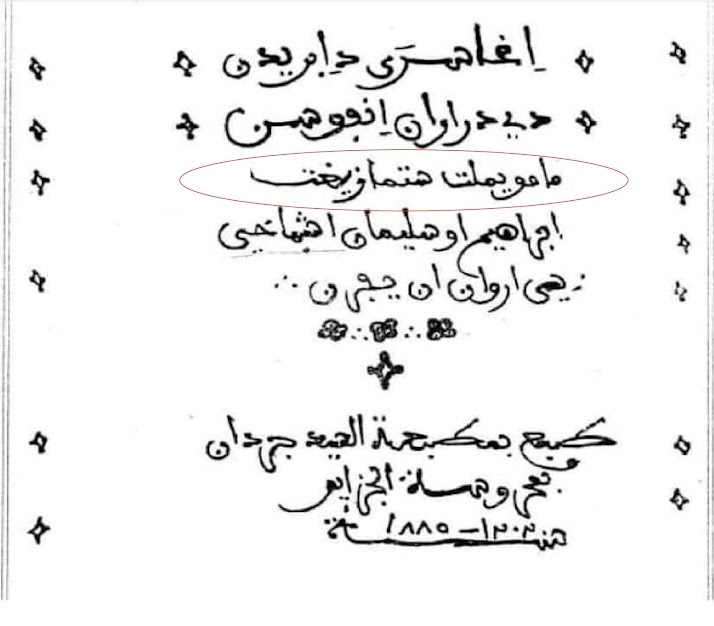 اِغاسرَى داِبريدن
دي دراران اِنفوسن
مامو يملت ستمازيغت
ابراهيم اوسليمان اشماخي
اروان ان يفرن
طبع بمطبعة السيد جردان
بمحروسة الجزاير
سنة ١٣٠٢-١٨٨٥